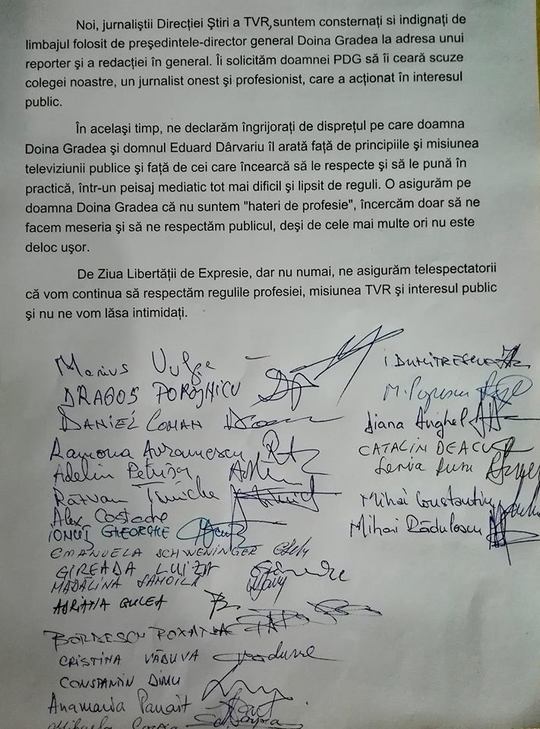 Noi, jurnaliştii Direcţiei Ştiri a TVR, suntem consternaţi si indignaţi de
limbajul folosit de preşedintele-director general Doina Gradea la adresa unui
reporter şi a redacţiei în general. Îi solicităm doamnei PDG să îi ceară scuze
colegei noastre, un jurnalist onest şi profesionist, care a acţionat în interesul
public.
În acelaşi timp, ne declarăm îngrijoraţi de dispreţul pe care doamna
Doina Gradea şi domnul Eduard Dârvariu îl arată faţă de principiile şi misiunea
televiziunii publice şi faţă de cei care încearcă să le respecte şi să le pună în
practică, într-un peisaj mediatic tot mai dificil şi lipsit de reguli. O asigurăm pe
doamna Doina Gradea că nu suntem "hateri de profesie", încercăm doar să ne
facem meseria şi să ne respectăm publicul, deşi de cele mai multe ori nu este
deloc uşor.
De Ziua Libertăţii de Expresie, dar nu numai, ne asigurăm telespectatorii
că vom continua să respectăm regulile profesiei, misiunea TVR şi interesul public
şi nu ne vom lăsa intimidaţi.
Marius
DRAGOŞ POROJNICU
DANIEL COMAN
Ramona Avramescu
Adelin Petrişor
Răzvan
Alex Costache
IONUŢ GHEORGHE
EMANUELA SCHWENINGER
GIREADA LUIZA
MĂDĂLINA SAMOILĂ
ADRIANA GULEA
ROXANA
CRISTINA VĂDUVA
CONSTANTIN DINU
Anamaria Panait
Mihaela
I DUMITRESCU
M. Popescu
Diana Anghel
CATALIN DEACU
Mihai Constantin
Mihai Rădulescu